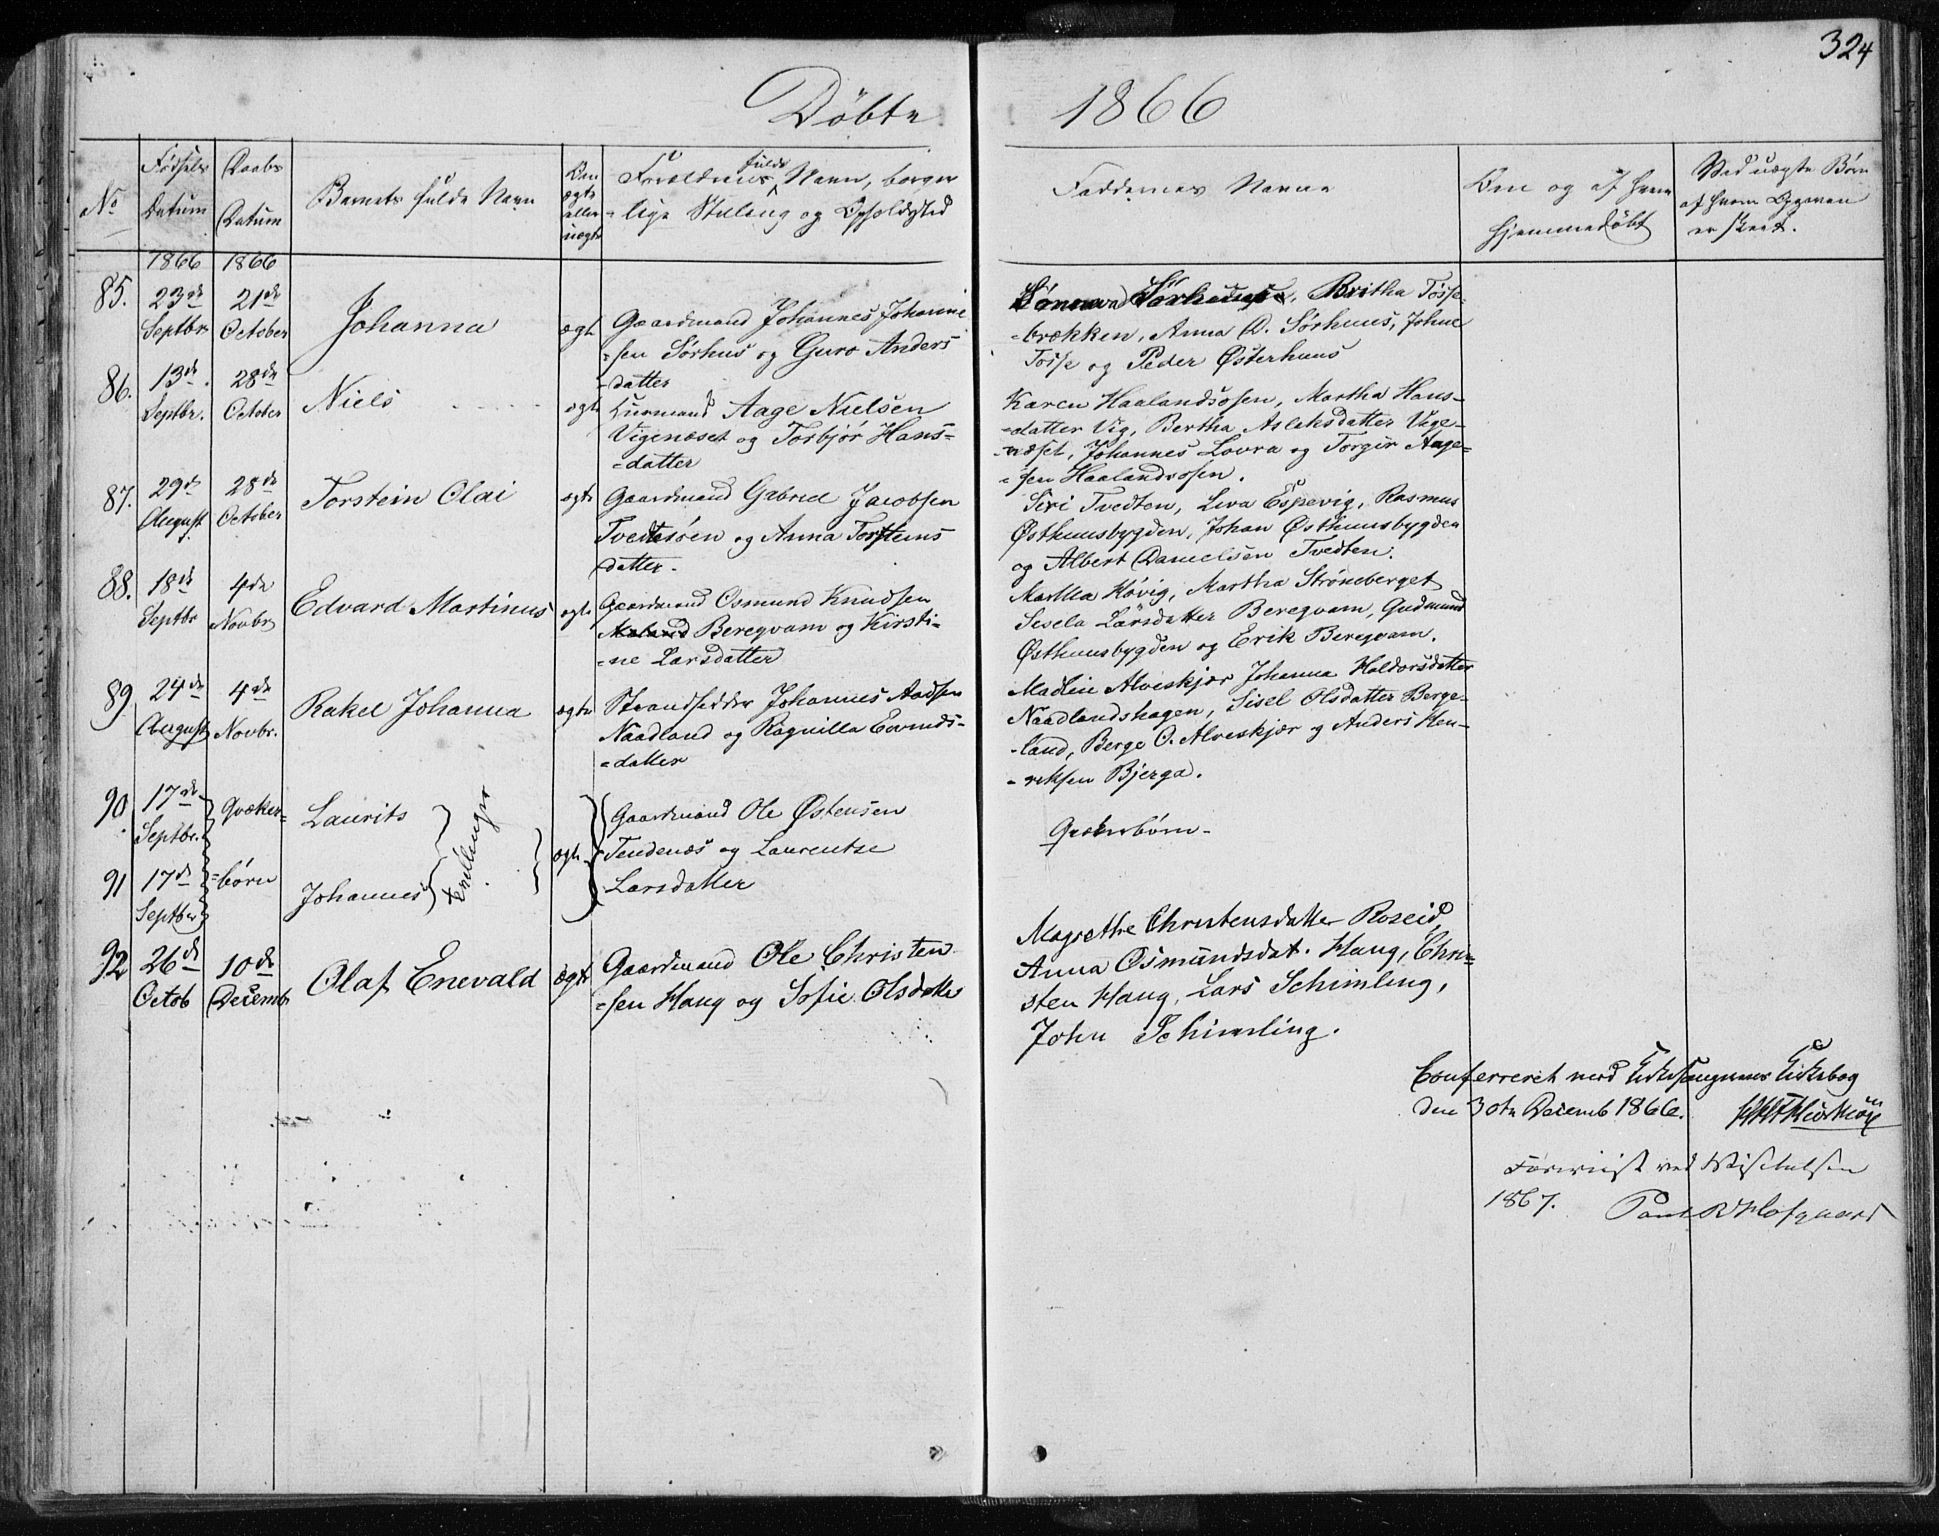 324
Døbte 1866
No
Fødsels Datum
Daabs Datum
Barnets fulde Navn
Om ægte eller uægte
Forældrenes fulde Navn, borger
=lige Stilling og Opholdsted
Faddernes Navne
Om og af hvem
hjemmedøbt
Ved uægte Børn
af hvem Opgaven
er skeet.
1866 1866
85. 23de Septbr 21de October Johanna ægte
Gaardmand Johannes Johanne
=sen Sørhus og Guro Anders
=datter
Sørhuus, Britha Tosse-
=brækken, Anna D. Sørhuus, Johne
Tosse og Peder Østerhuus
86. 13de Septbr. 28de October Niels ægte
Huusmand Aage Nielsen
Vigenæset og Torbjør Hans=
=datter
Karen Haalandsosen, Martha Hans-
=datter Vig, Bertha Aslaksdatter Vige-
-næset, Johannes Lovra og Torgir Aage-
=sen Haalandsosen.
87. 29de August 28de October Torstein Olai ægte
Gaardmand Gabriel Jacobsen
Tvedtesøen og Anna Torsteins
datter.
Siri Tvedten, Liva Espevig, Rasmus
Østhuusbygden, Johan Østhuusbygden
og Albert Danielsen Tvedten.
88. 18de Septbr 4de Novbr Edvard Martinus ægte
Gaardmand Osmund Knudsen
Beregvam og Kirsti=
=ne Larsdatter
Martha Høvig, Martha Strøneberget
Sesela Larsdatter Beregvam, Gudmund
Østhuusbygden og Erik Beregvam.
89. 24de August 4de Novbr. Rakel Johanna ægte
Strandsidder Johannes Aadsen
Naadland og Ragnilla Eevinds-
=datter
Madlin Alveskjær Johanna Haldorsdatter
Naadlandshagen, Sisel Olsdatter Berge-
-land, Berge O. Alveskjær og Anders Hen-
-riksen Bjerga.
90. 17de Septbr. Qvæker= Laurits
91 17de Septber =børn Johannes Tvillinger ægte
Gaardmand Ole Østensen
Tendenæs og Laurentse
Larsdatter
Qvækerbørn-
92 26de Octob 10de Decemb Olaf Enevald ægte
Gaardmand Ole Christen
=sen Haug og Sofie Olsdatter
Magrethe Christensdatter Roseid,
Anna Osmundsdat. Haug, Chri=
sten Haug, Lars Schimling,
John Schimling.
Confereret med Kirkesangerens Kirkebog
den 30te Decemb 1866.
Foreviist ved Visitatsen
1867. Paul Hofgaard